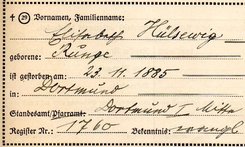 † 29 Vornamen, Familienname:
Elisabeth Hülsewig
geborene:
Runge
ist gestorben am 23. 11. 1885
in Dortmund
Dortmund I Mitte
Standesamt/Pfarramt:
Register Nr. 1760 Bekenntnis: evangl